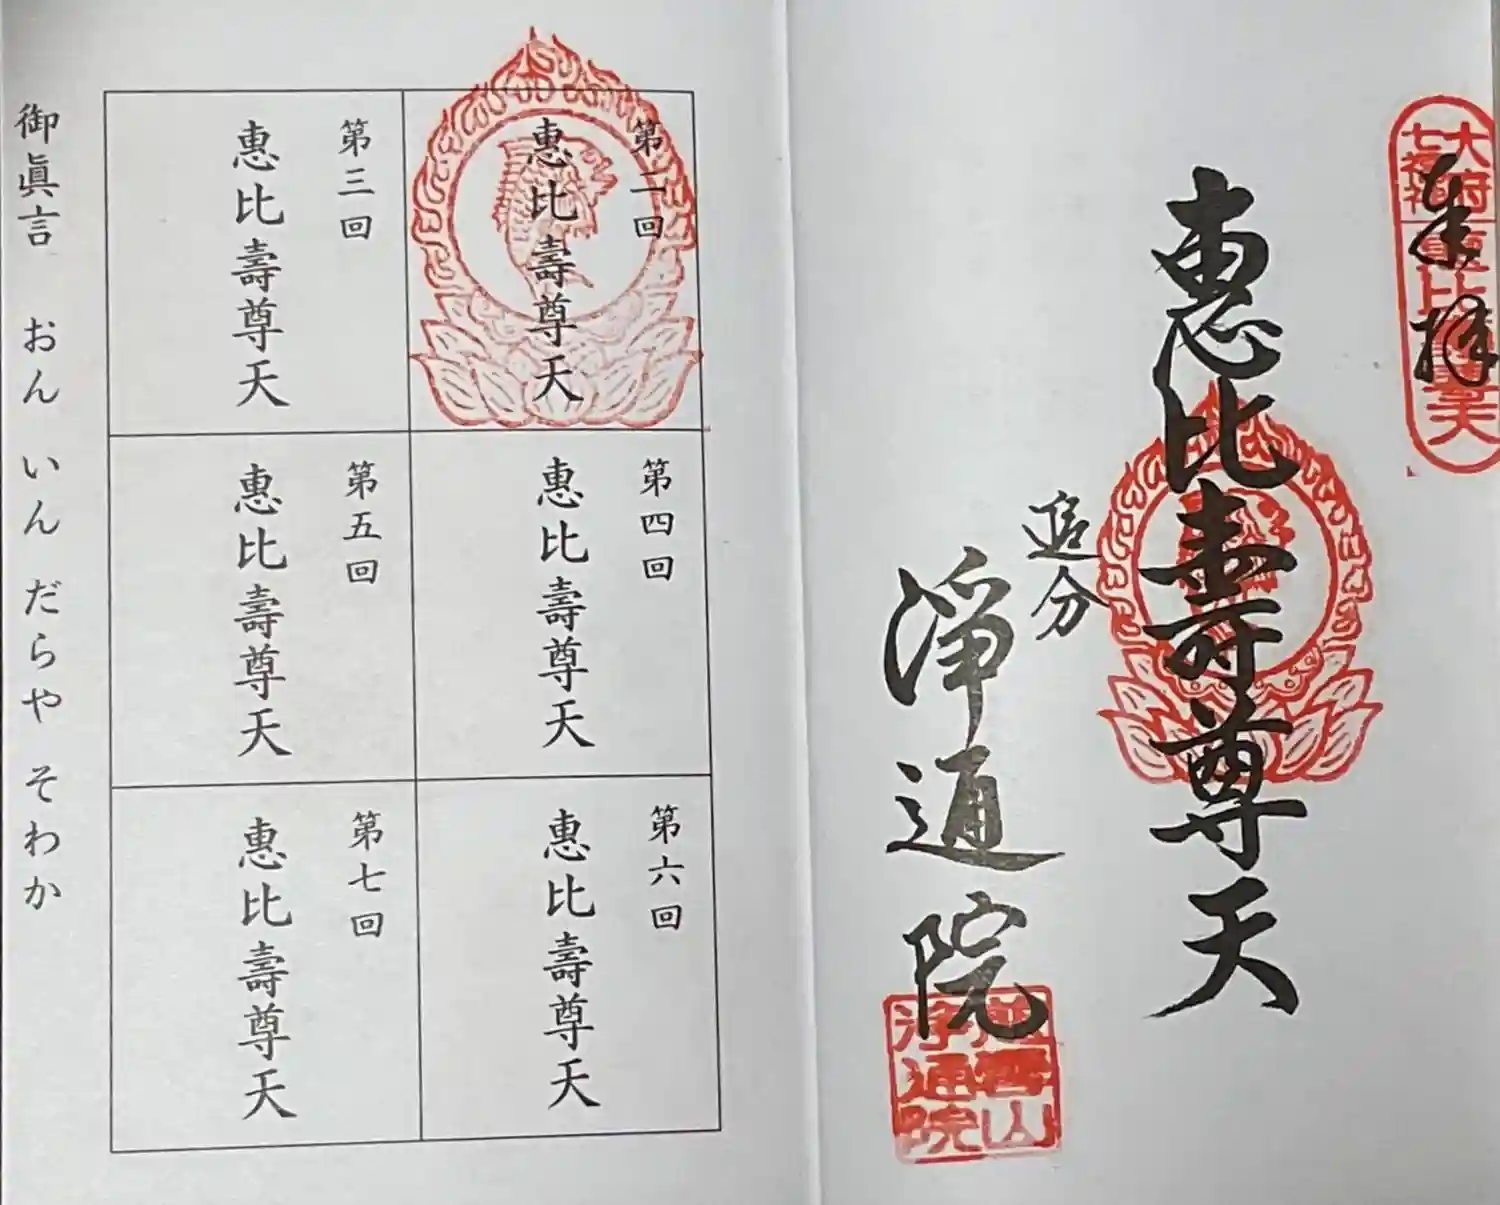 奉拝
大府七福神
惠比壽尊天
惠比壽尊天
追分
淨通院
淨通院
第二回
惠比壽尊天
第三回
惠比壽尊天
第四回
惠比壽尊天
第五回
惠比壽尊天
第六回
惠比壽尊天
第七回
惠比壽尊天
御眞言 おん いん だらや そわか